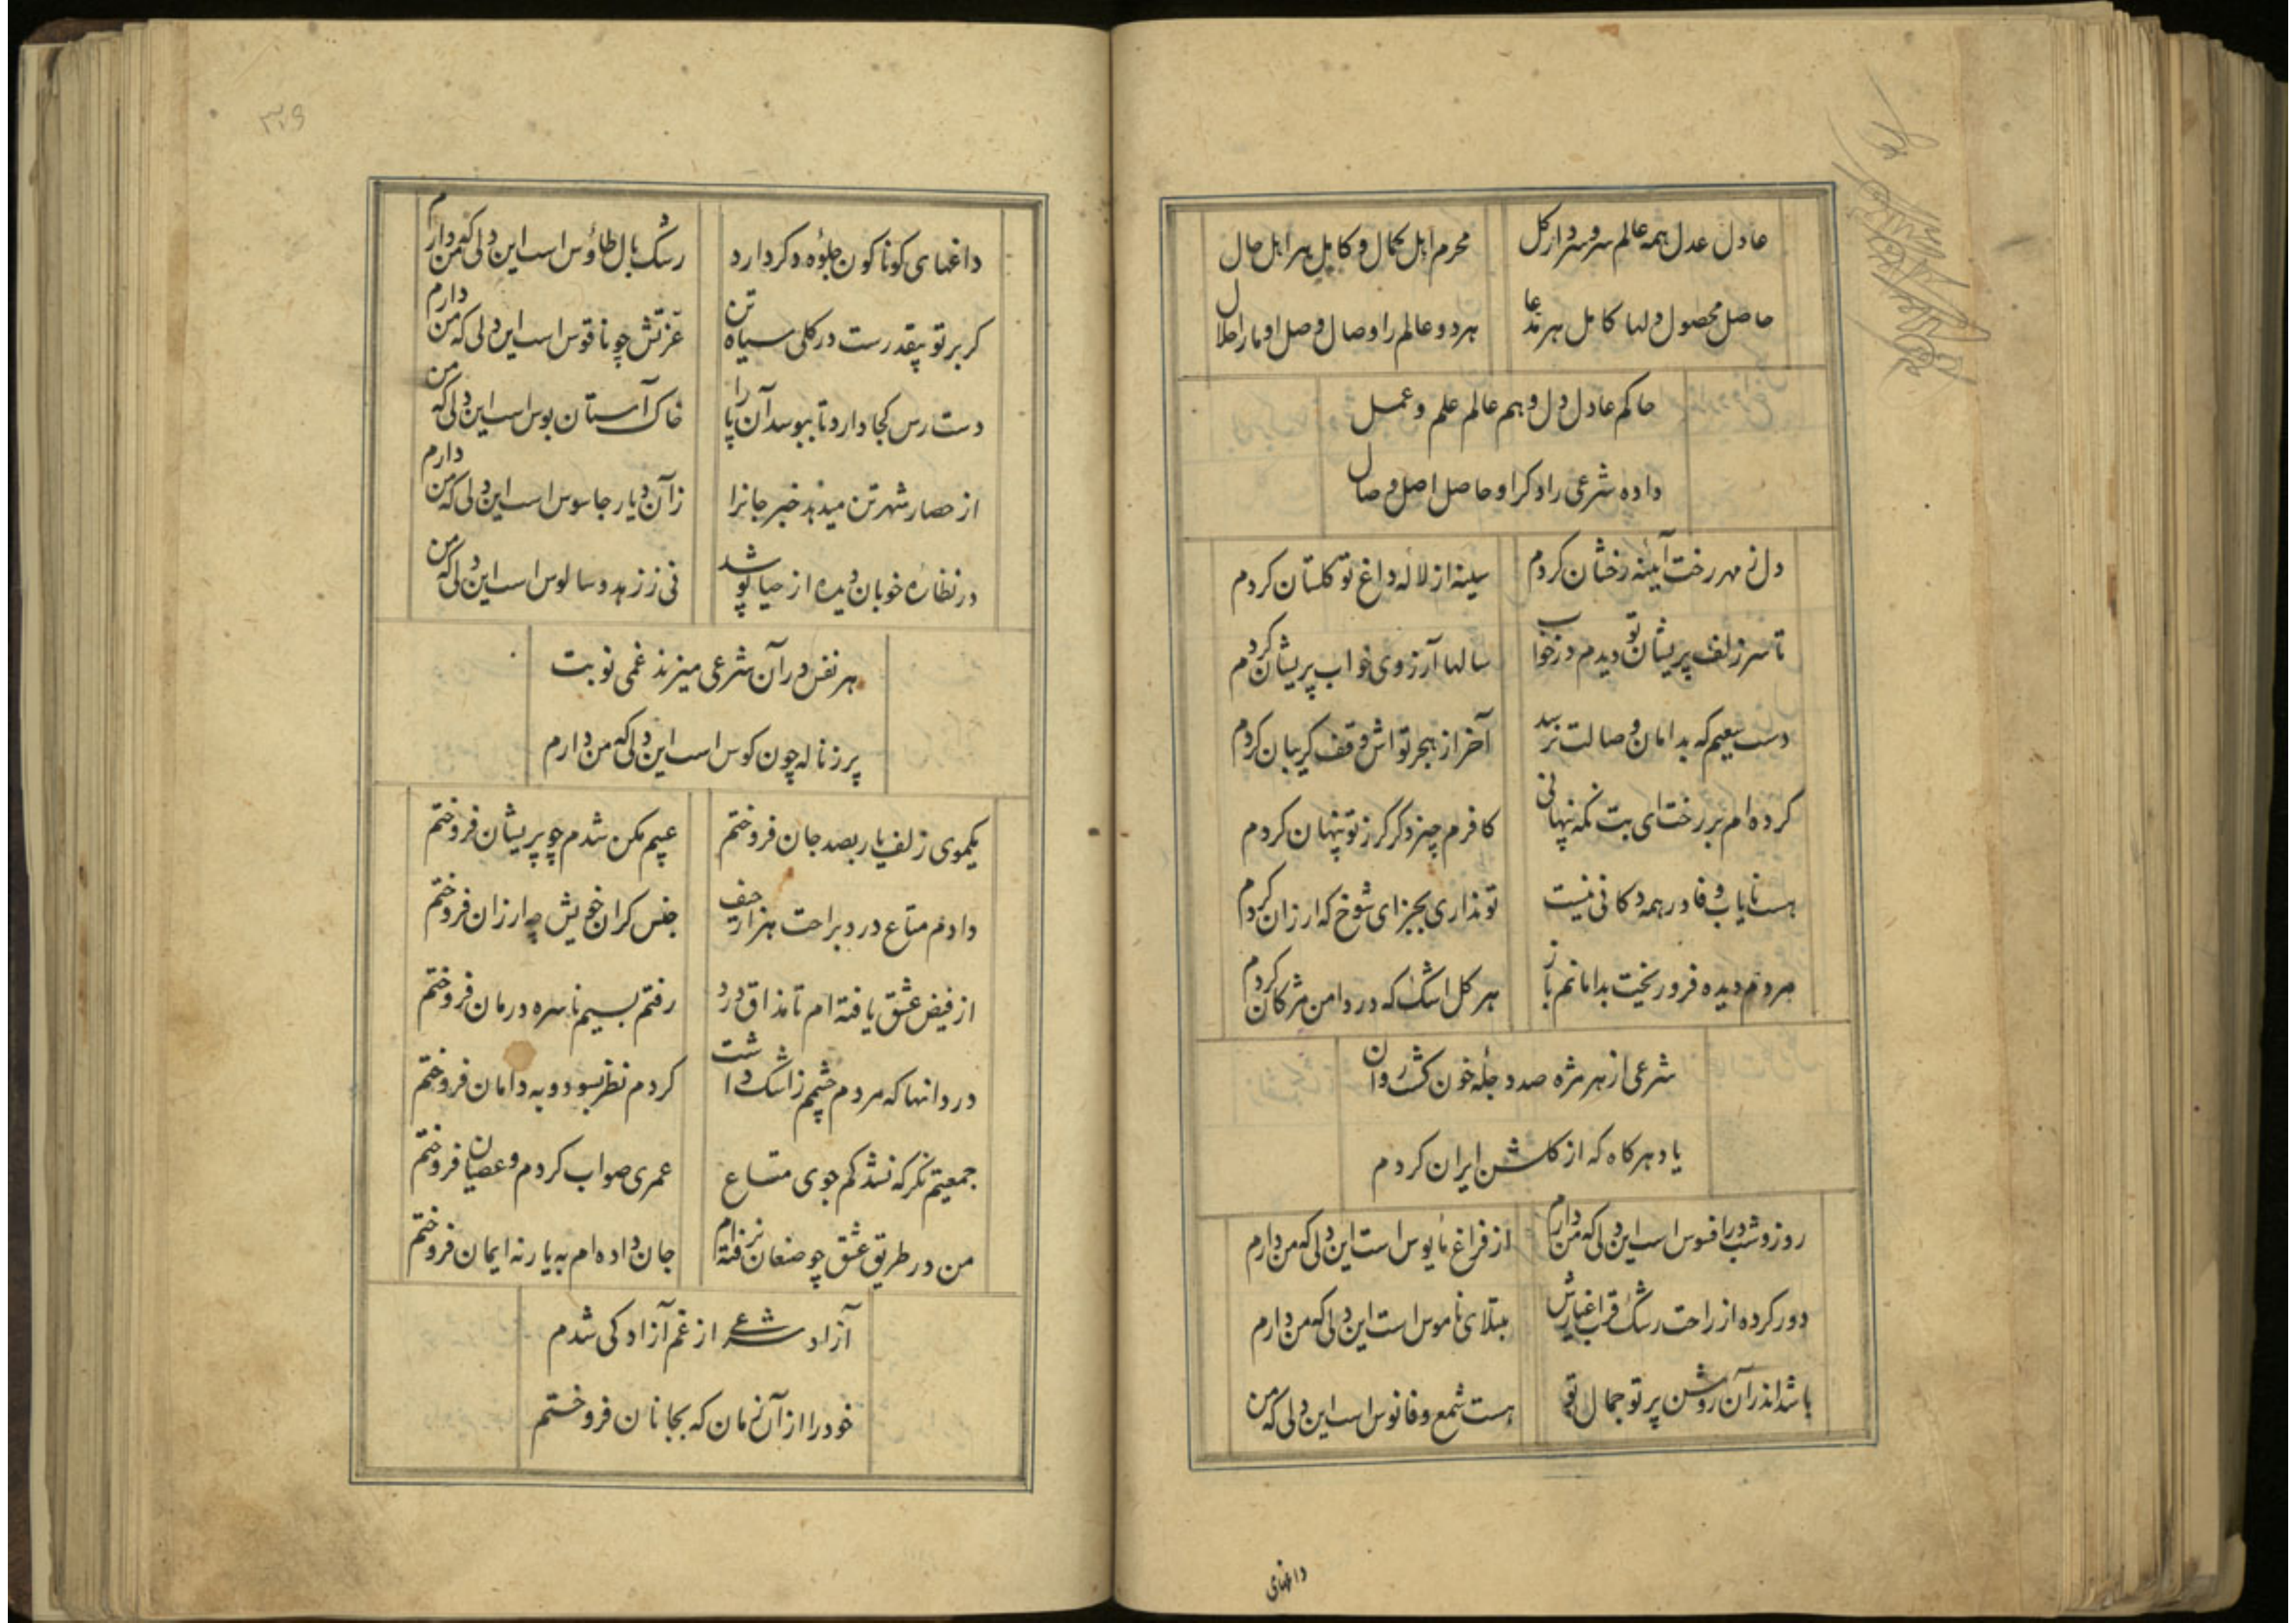 عادل عدل همه عالم سر و سردار کل
محرم اهل کمال و کامل هر اهل حال
حاصل محصول دلها کامل هر مدعا
هر دو عالم را وصال وصل او ما را حلال
حاکم عادل دل و هم عالم علم و عمل
داده شرعی را دکر او حاصل اصل وصال
دل ز مهر رخت آیینه رخشان کردم
سینه از لاله داغ تو کلستان کردم
تا سر زلف پریشان تو دیدم در خواب
سالها آرزوی خواب پریشان کردم
دست سعیم که بدامان وصالت نرسد
آخر از هجر تو اش وقف کریبان کردم
کرده ام بر رخت ای بت نکه پنهانی
کافرم چیز دکر کر ز تو پنهان کردم
هست نایاب وفا در همه دکانی نیست
تو نداری بجز ای شوخ که ارزان کردم
مردم دیده فرو ریخت بدامانم باز
هر کل اشک که در دامن مژکان کردم
شرعی از هر مژه صد دجله خون کشت روان
یاد هر کاه که از کلشن ایران کردم
روز و شب در افسوس است این دلی که من دارم
از فراغ مایوس است این دلی که من دارم
دور کرده از راحت رشک قرب اغیارش
مبتلای ناموس است این دلی که من دارم
باشد اندر آن روشن پرتو جمال تو
هست شمع و فانوس است این دلی که من
داغهای
۳۲۹
داغهای کوناکون جلوه دکر دارد
رشک بال طاؤس است این دلی که من دارم
کر بر تو بیقدرست در کلی سیاه تن
عزتش چو ناقوس است این دلی که من دارم
دست رس کجا دارد تا ببوسد آن پا را
خاک آستان بوس است این دلی که من
از حصار شهر تن میدهد خبر جانرا
زآن دیار جاسوس است این دلی که من دارم
در نظاره خوبان دیده از حیا پوشد
نی ز زهد و سالوس است این دلی که من
هر نفس در آن شرعی میزند غمی نوبت
پر ز ناله چون کوس است این دلی که من دارم
یکموی زلف یار بصد جان فروختم
عیبم مکن شدم چو پریشان فروختم
دادم متاع درد براحت هزار حیف
جنس کران خویش چه ارزان فروختم
از فیض عشق یافته ام تا مذاق درد
رفتم بسیم ناسره درمان فروختم
دردانها که مردم چشمم ز اشک داشت
کردم نظر بسود و به دامان فروختم
جمعیتم نکر که نشد کم جوی متاع
عمری صواب کردم و عصیان فروختم
من در طریق عشق چو صنعان نرفته ام
جان داده ام به یار نه ایمان فروختم
آزاد شرعی از غم آزادکی شدم
خود را از آن زمان که بجانان فروختم